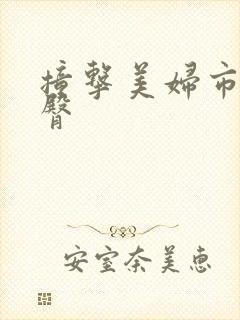 撞擊美婦市
臀
安室奈美惠